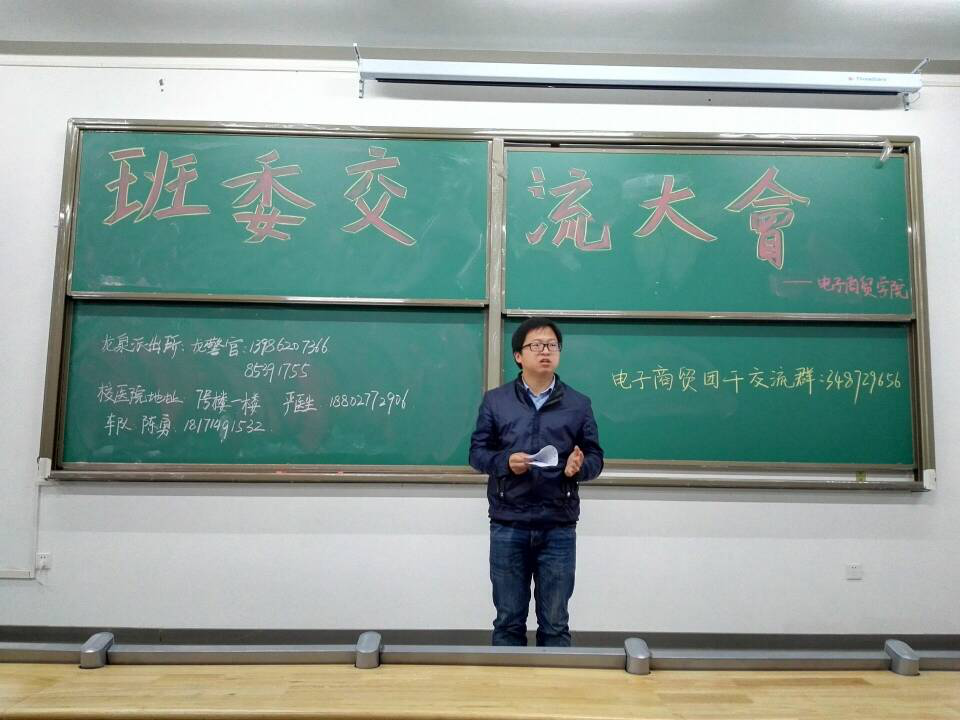 班委交流大會
——电子商贸学院
龙泉派出所:龙警官:13986207366
85391755
校医院地址:7号楼一楼 严医生 18802772906
车队 陈勇:18171491532
电子商贸团干交流群:348729656